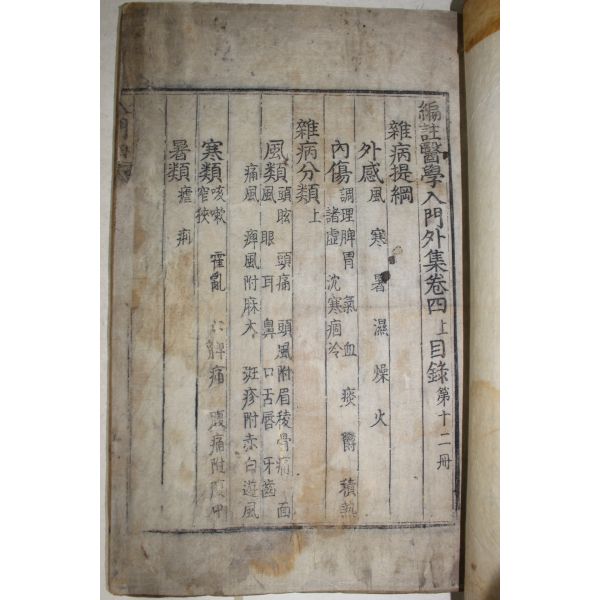 編註醫學入門外集卷四上目錄 第十二冊
雜病提綱
外感 風 寒 暑 濕 燥 火
內傷 調理脾胃 氣 血 痰 鬱 積熱
諸虛 沈寒痼冷
雜病分類 上
風類 頭眩 頭痛 頭風附眉稜骨痛 面
風 眼 耳 鼻 口舌唇 牙齒
痛風 痺風附麻木 斑疹附赤白遊風
寒類 咳嗽 霍亂 心脾痛 腹痛附腹中
窄狹
暑類 瘧 痢
入門